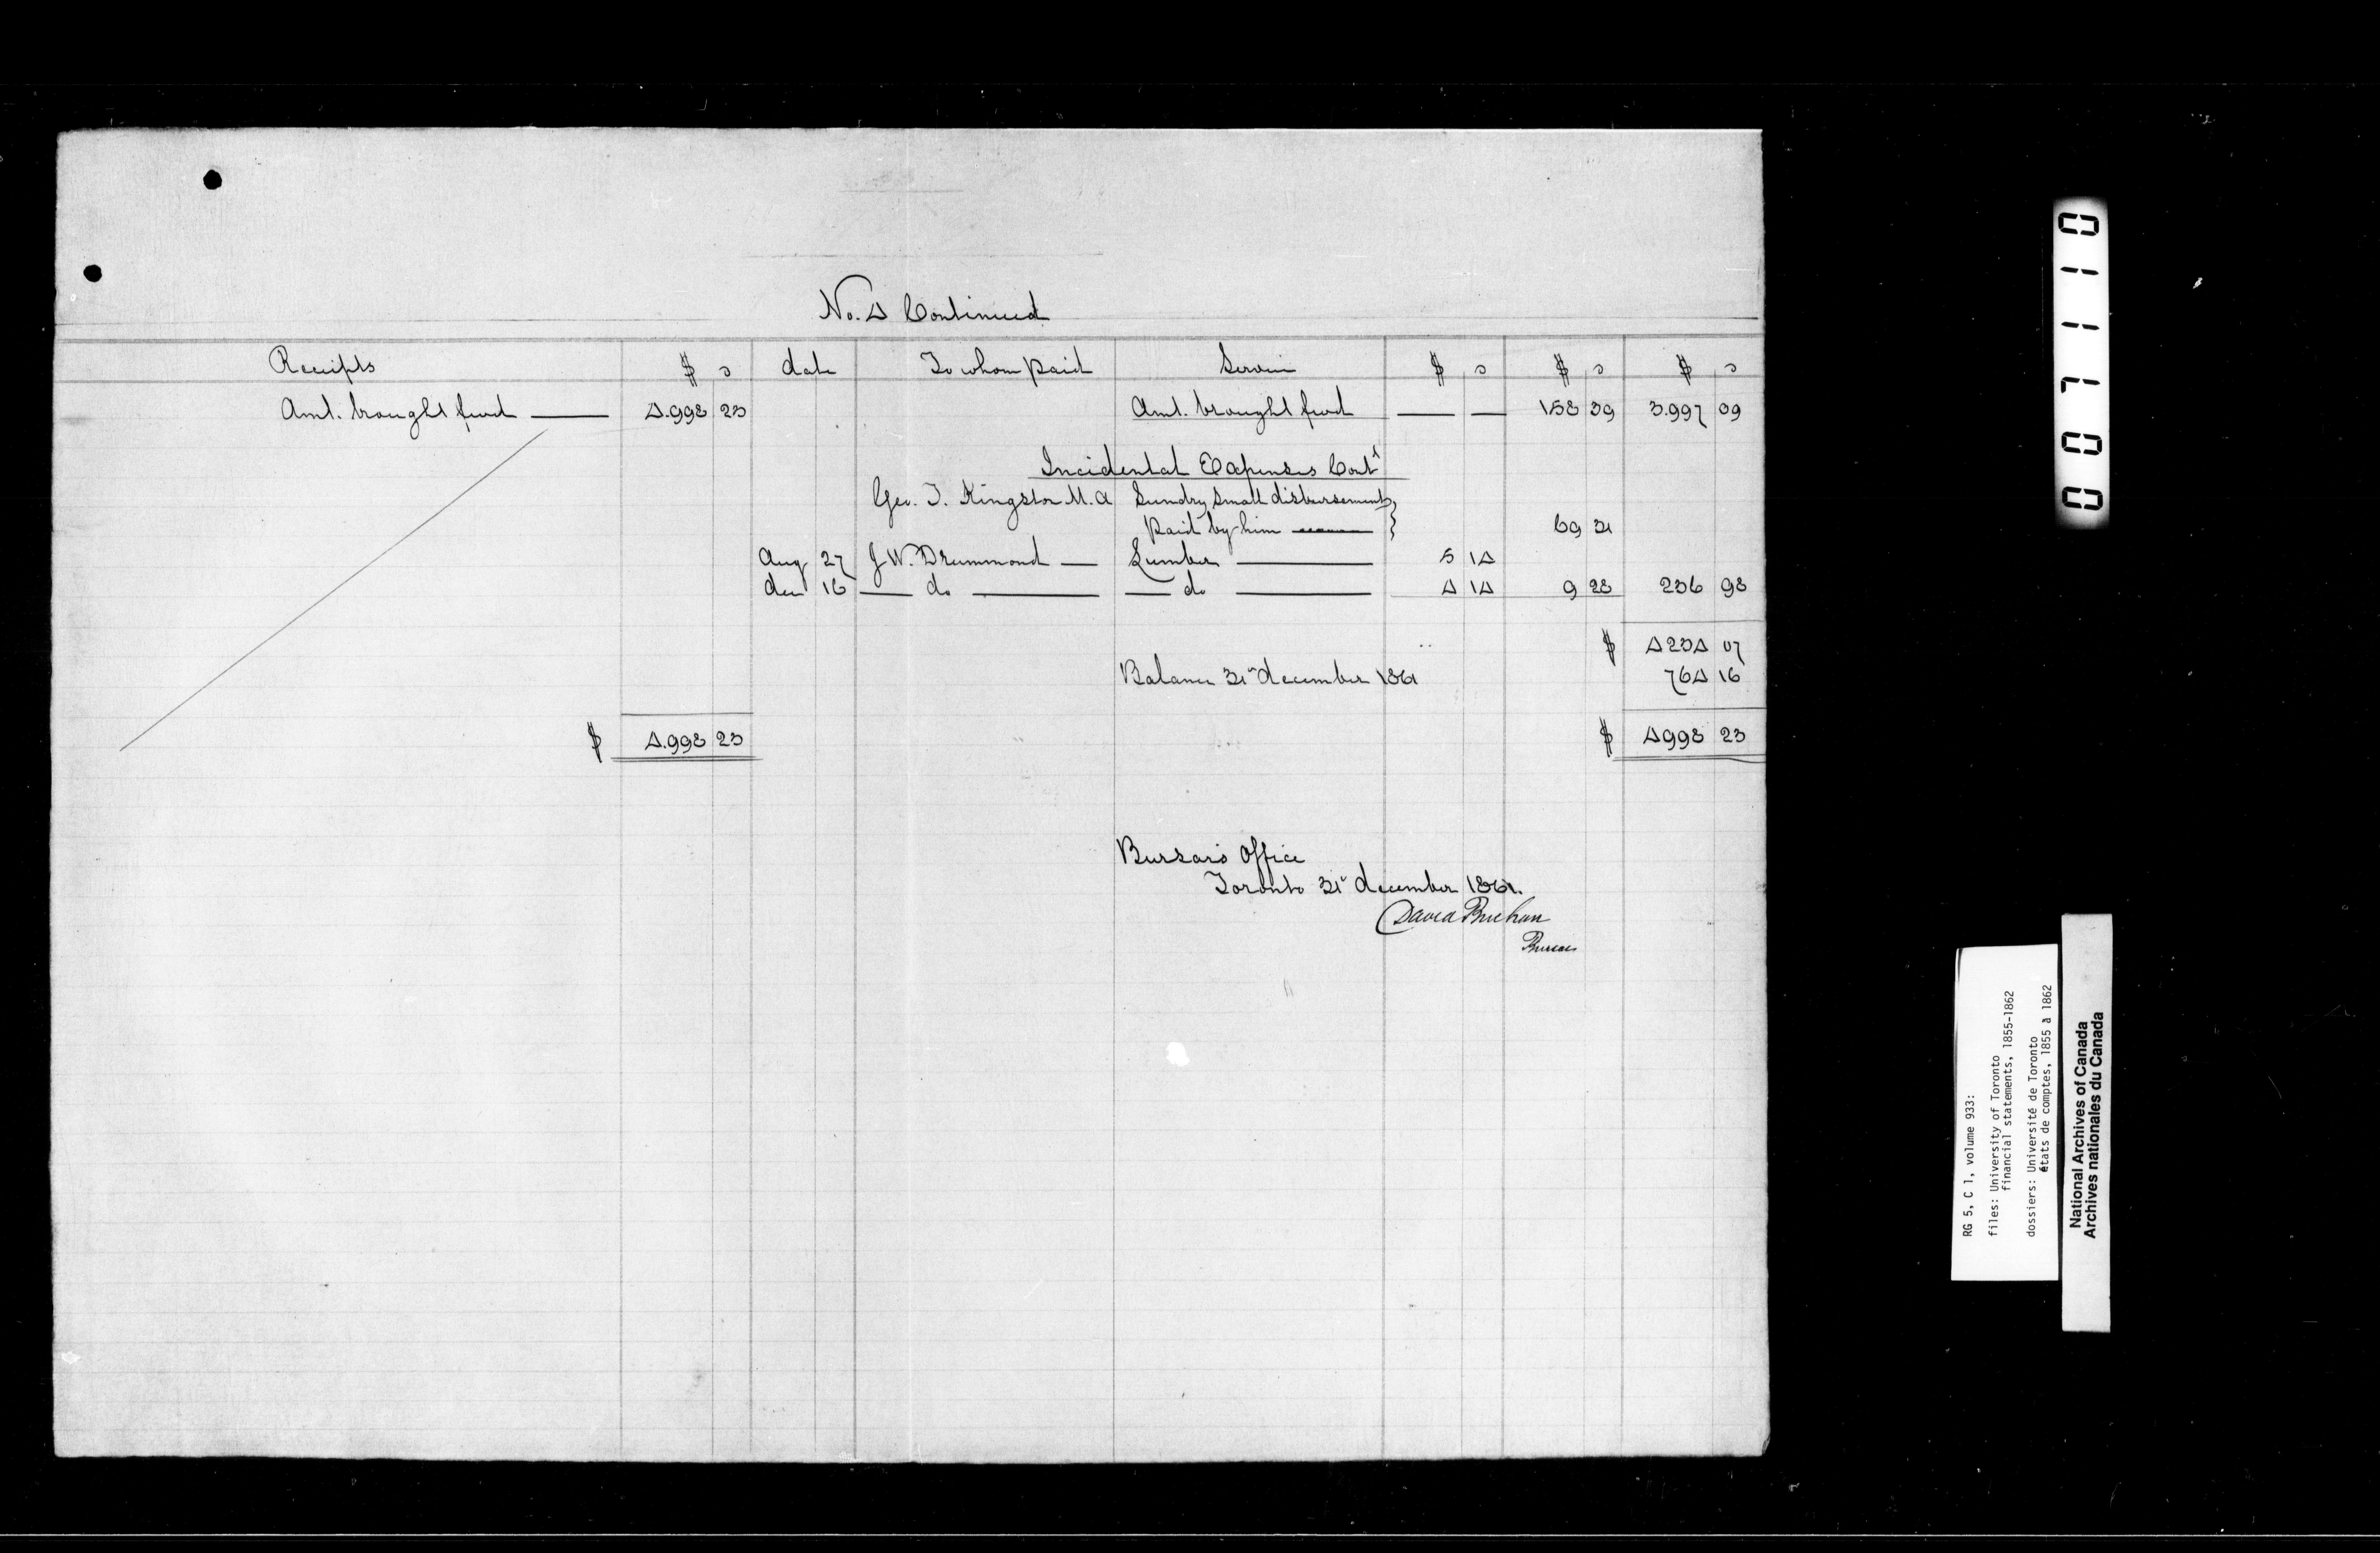 No. 4 Continued
Receipts $ c date To whom paid Service $ c $ c $ c
Amt. brought fwd 4.998 23 Amt. brought fwd 158 39 3.997 09
Incidental Expenses Contd
Geo. T. Kingston M.A Sundry small disbursements
paid by him 69 31
Aug 27 J W. Drummond Lumber 5 14
dec 16 do do 4 14 9 28 236 98
$ 4234 07
Balance 31st december 1861 764 16
$ 4.998 23 $ 4998 23
Bursar's Office
Toronto 31st december 1861.
David Buchan
Bursar
007110
RG 5, C 1, volume 933:
files: University of Toronto
financial statements, 1855-1862
dossiers: Université de Toronto
états de comptes, 1855 à 1862
National Archives of Canada
Archives nationales du Canada